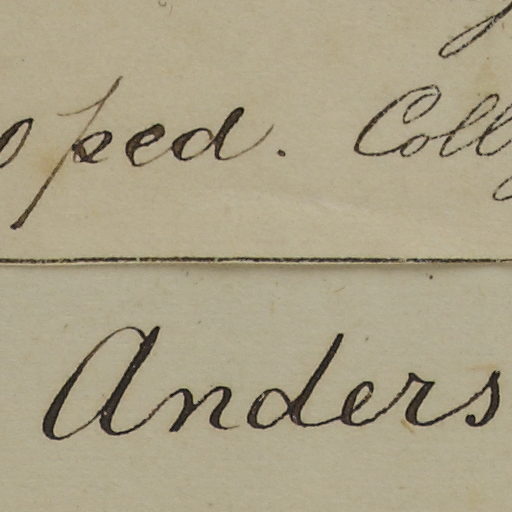 oped. Colly
Anders